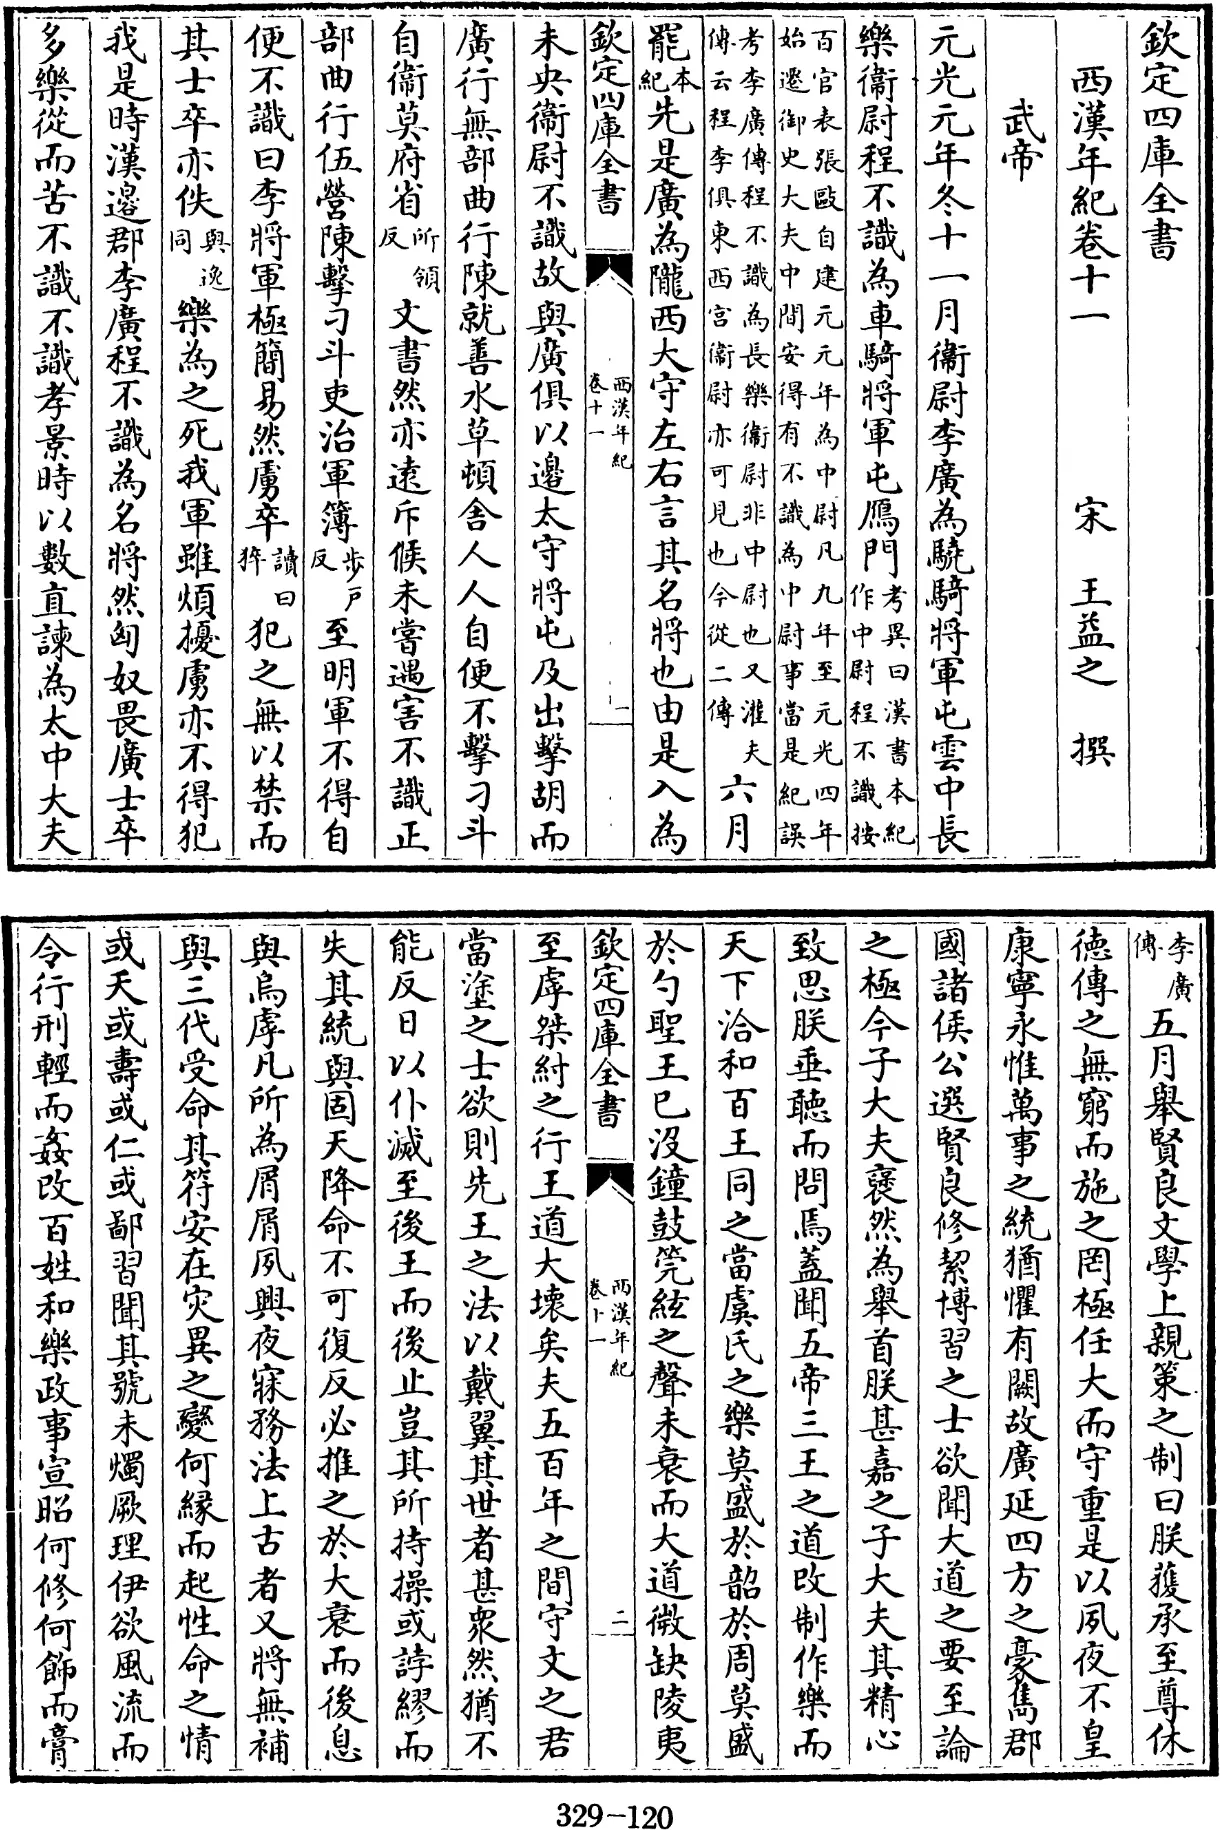 欽定四庫全書
西漢年紀卷十一　宋　王益之　撰
武帝
元光元年冬十一月衞尉李廣為驍騎將軍屯雲中長
樂衞尉程不識為車騎將軍屯鴈門考異曰漢書本紀作中尉程不識按
百官表張歐自建元元年為中尉凡九年至元光四年始遷御史大夫中間安得有不識為中尉事當是紀誤
考李廣傳程不識為長樂衞尉非中尉也又灌夫傳云程李俱東西宮衞尉亦可見也今從二傳六月
罷本紀先是廣為隴西大守左右言其名將也由是入為
欽定四庫全書
西漢年紀
卷十一
一
未央衞尉不識故與廣俱以邊太守將屯及出擊胡而
廣行無部曲行陳就善水草頓舍人人自便不擊刁斗
自衞莫府省所領反文書然亦遠斥候未嘗遇害不識正
部曲行伍營陳擊刁斗吏治軍簿步戸反至明軍不得自
便不識曰李將軍極簡易然虜卒讀曰猝犯之無以禁而
其士卒亦佚與逸同樂為之死我軍雖煩擾虜亦不得犯
我是時漢邉郡李廣程不識為名將然匈奴畏廣士卒
多樂從而苦不識不識孝景時以數直諫為太中大夫
李廣傳五月舉賢良文學上親策之制曰朕獲承至尊休
德傳之無窮而施之罔極任大而守重是以夙夜不皇
康寧永惟萬事之統猶懼有闕故廣延四方之豪雋郡
國諸侯公選賢良修絜博習之士欲聞大道之要至論
之極今子大夫褎然為舉首朕甚嘉之子大夫其精心
致思朕垂聽而問焉蓋聞五帝三王之道改制作樂而
天下洽和百王同之當虞氏之樂莫盛於韶於周莫盛
於勺聖王已沒鐘鼓筦絃之聲未衰而大道微缺陵夷
欽定四庫全書
西漢年紀
卷十一
二
至虖桀紂之行王道大壞矣夫五百年之間守文之君
當塗之士欲則先王之法以戴翼其世者甚衆然猶不
能反日以仆滅至後王而後止豈其所持操或誖繆而
失其統與固天降命不可復反必推之於大衰而後息
與烏虖凡所為屑屑夙興夜寐務法上古者又將無補
與三代受命其符安在灾異之變何緣而起性命之情
或夭或壽或仁或鄙習聞其號未燭厥理伊欲風流而
令行刑輕而姦改百姓和樂政事宣昭何修何飾而膏
329-120